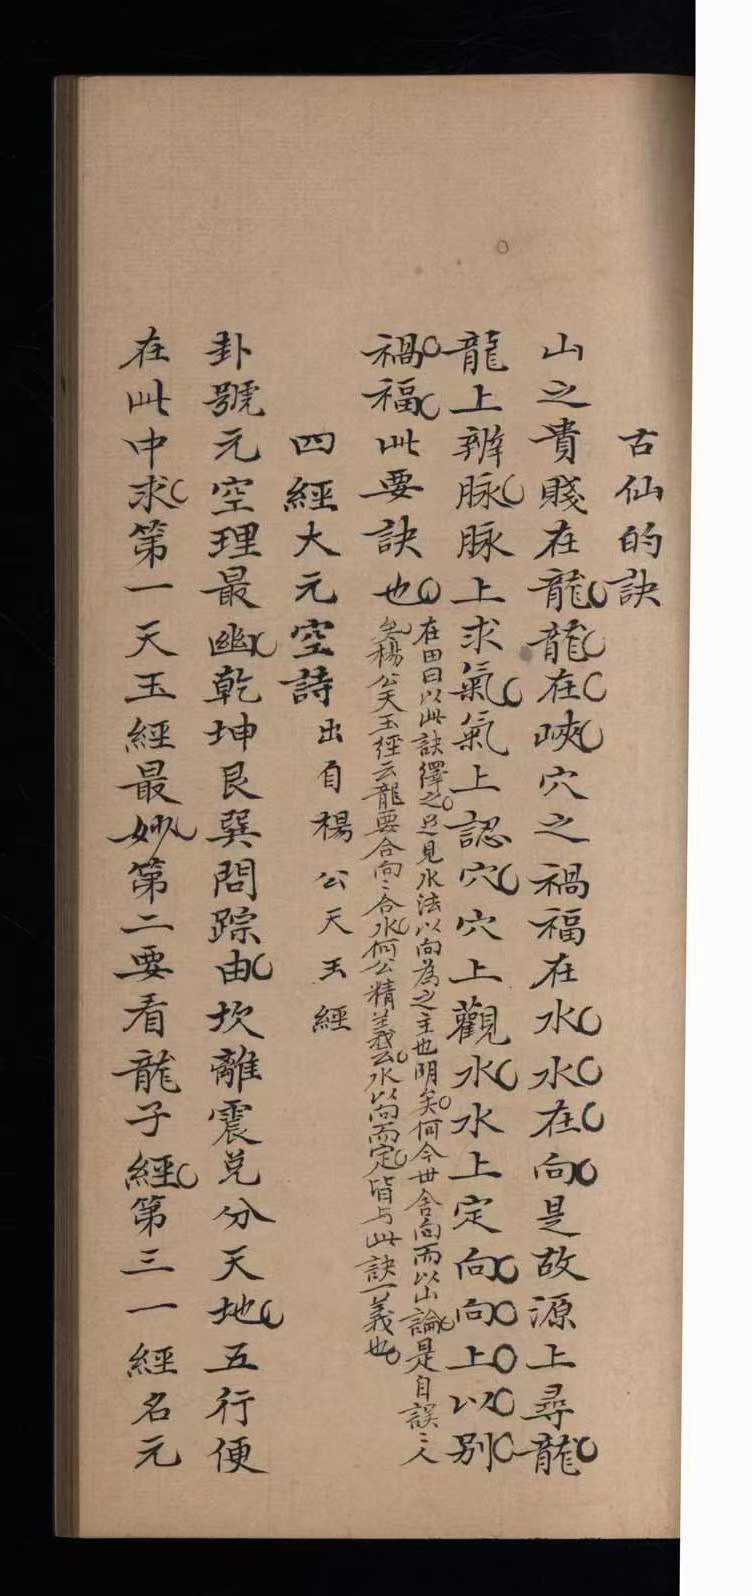 古仙的訣
山之貴賤在龍龍在峽穴之禍福在水水在向是故源上尋龍
龍上辨脉脉上求氣氣上認穴穴上觀水水上定向向上以別
禍福此要訣也
在田曰以此訣繹之足見水法以向為之主也明矣何今世舍向而以山論是自誤〻人
矣楊公天玉經云龍要合向〻合水何公精義云水以向而定皆与此訣一義也
四經大元空詩 出自楊公天玉經
卦號元空理最幽乾坤艮巽問踪由坎離震兌分天地五行便
在此中求第一天玉經最妙第二要看龍子經第三一經名元